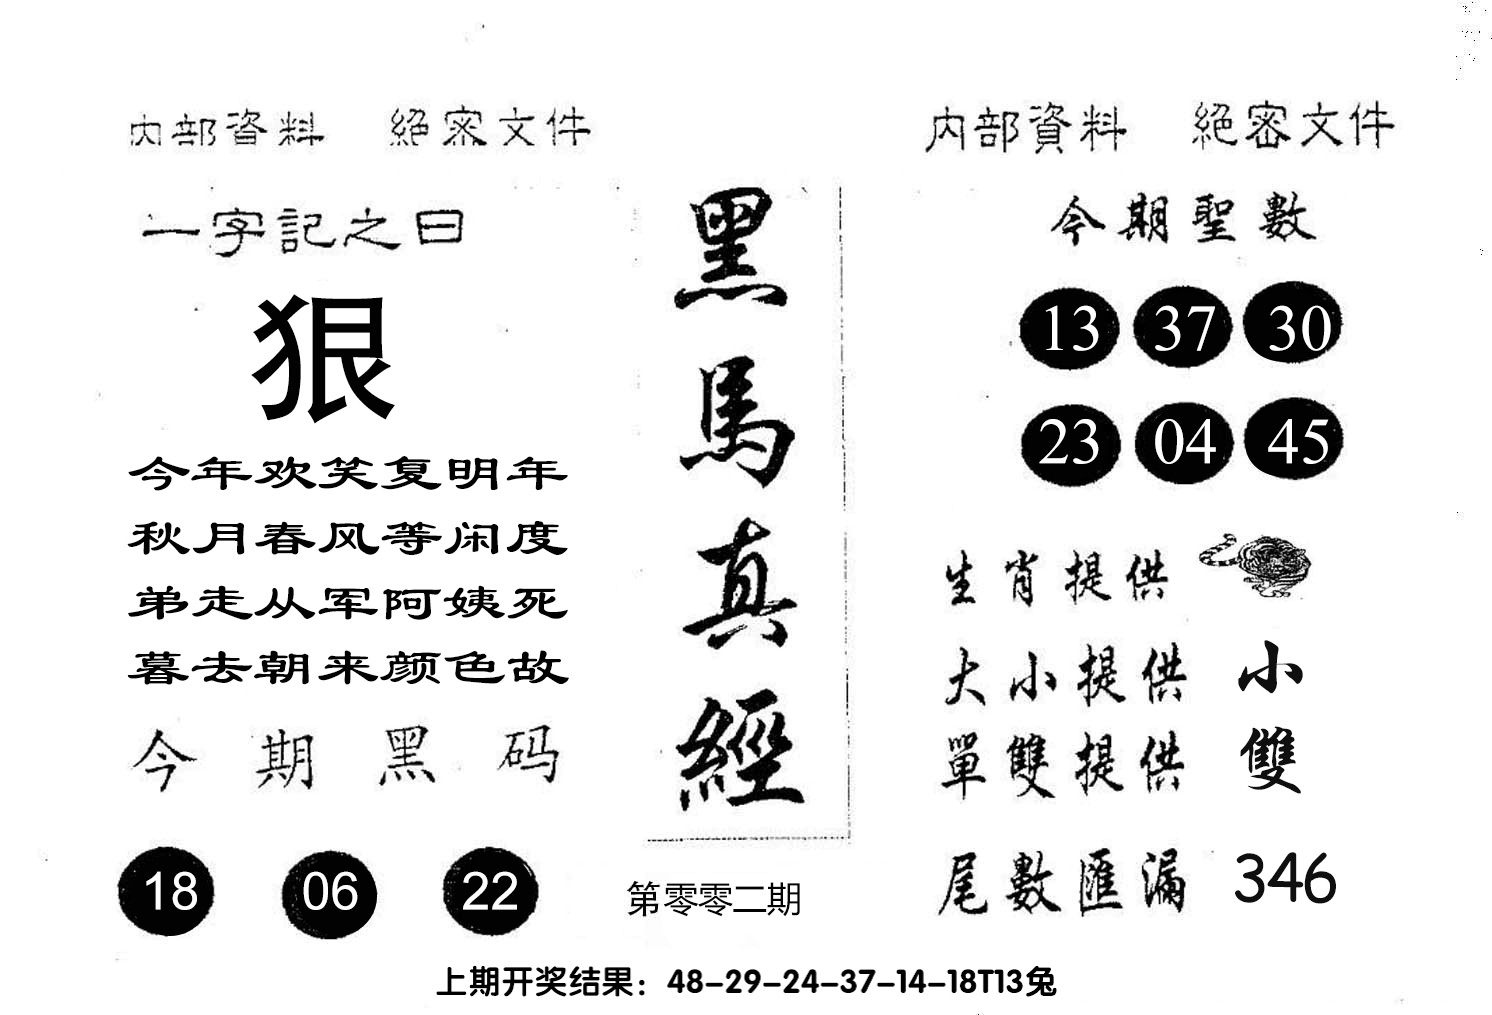 内部資料 絕密文件
一字記之曰
狠
今年欢笑复明年
秋月春风等闲度
弟走从军阿姨死
暮去朝来颜色故
今期黑码
18 06 22
黑馬真經
第零零二期
内部資料 絕密文件
今期聖數
13 37 30
23 04 45
生肖提供
大小提供 小
單雙提供 雙
尾數匯漏 346
上期开奖结果：48-29-24-37-14-18T13兔